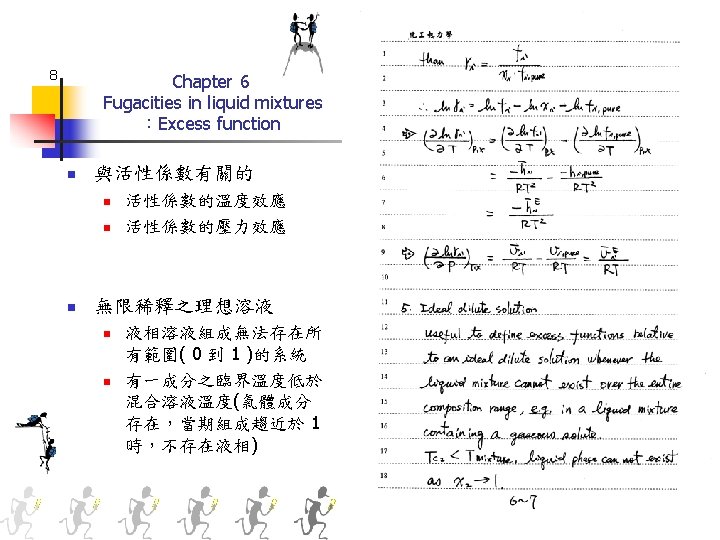 8
Chapter 6
Fugacities in liquid mixtures
：Excess function
與活性係數有關的
活性係數的溫度效應
活性係數的壓力效應
無限稀釋之理想溶液
液相溶液組成無法存在所
有範圍( 0 到 1 )的系統
有一成分之臨界溫度低於
混合溶液溫度(氣體成分
存在，當期組成趨近於 1
時，不存在液相)
化工熱力學
1 then γi = fi / (xi · fi,pure)
2
3 ∴ ln γi = ln fi − ln xi − ln fi,pure
4 ⇒ (∂ ln γi / ∂T)P,x = (∂ ln fi / ∂T)P,x − (∂ ln fi,pure / ∂T)P,x
5
6 = −h̄i / RT² − −hi,pure / RT²
7 = −h̄iᴱ / RT²
8
9 ⇒ (∂ ln γi / ∂P)T,x = v̄i / RT − vi,pure / RT = v̄iᴱ / RT
10
11 5. Ideal dilute solution
12 useful to define excess functions relative
13 to an ideal dilute solution whenever the
14 liquid mixture cannot exist over the entire
15 composition range, e.g. in a liquid mixture
16 containing a gaseous solute.
17 Tc2 < Tmixture, liquid phase can not exist
18 as x2 → 1.
6~7